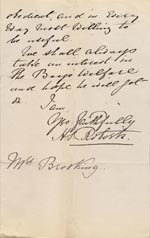 obedient, and in Every
Way most willing to
be useful
We shall always
take an interest in
The Boys Welfare
and hope he will get
on
I am
Yrs faithfully
H. Roberts
Mrs Brooking